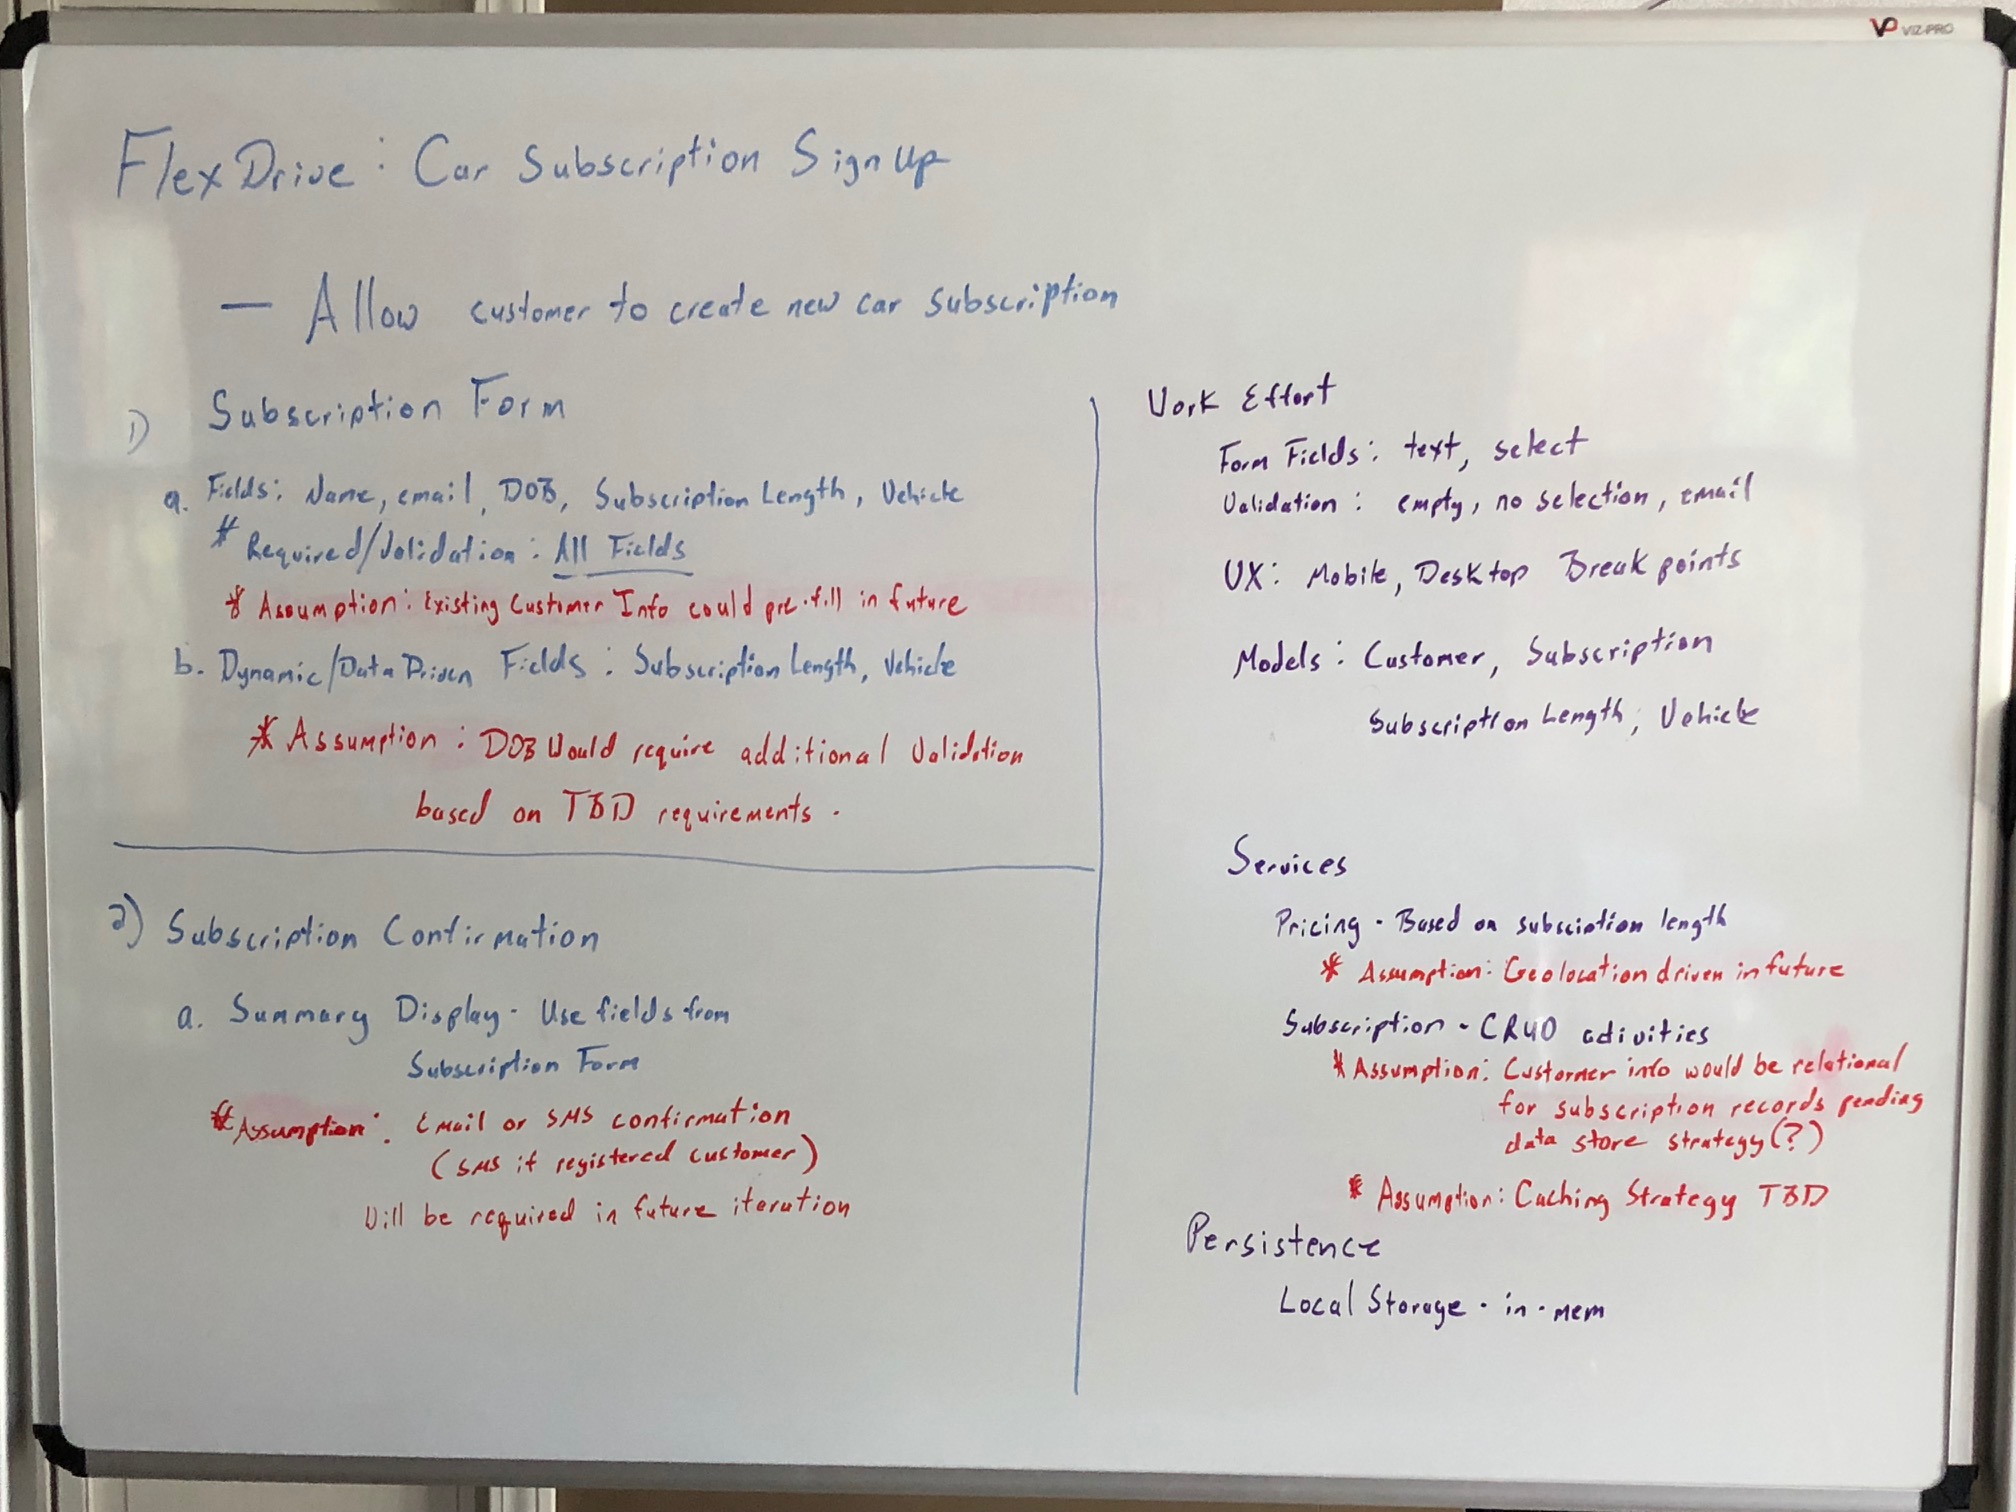 VP VIZ-PRO
FlexDrive: Car Subscription Sign Up
— Allow customer to create new car subscription
1) Subscription Form
a. Fields: Name, email, DOB, Subscription Length, Vehicle
* Required/Validation: All Fields
* Assumption: Existing Customer Info could pre-fill in future
b. Dynamic/Data Driven Fields: Subscription Length, Vehicle
* Assumption: DOB Would require additional Validation
based on TBD requirements.
2) Subscription Confirmation
a. Summary Display - Use fields from
Subscription Form
* Assumption: Email or SMS confirmation
(SMS if registered customer)
Will be required in future iteration
Work Effort
Form Fields: text, select
Validation: empty, no selection, email
UX: Mobile, Desktop Break points
Models: Customer, Subscription
Subscription Length, Vehicle
Services
Pricing - Based on subsciption length
* Assumption: Geolocation driven in future
Subscription - CRUD activities
* Assumption: Customer info would be relational
for subscription records pending
data store strategy(?)
* Assumption: Caching Strategy TBD
Persistence
Local Storage - in-mem